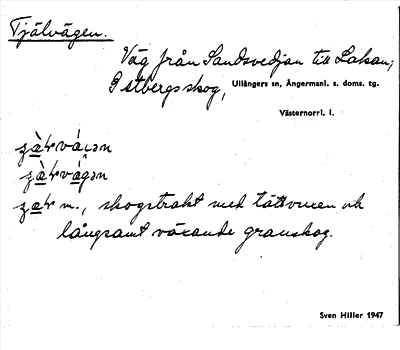 Tjälvägen.
Väg från Sandsvedjan till Lakan;
Ullångers sn, Ångermanl. s. doms. tg.
Västernorrl. l.
m., skogstrakt med tättvuxen och
långsamt växande granskog.
Sven Hiller 1947